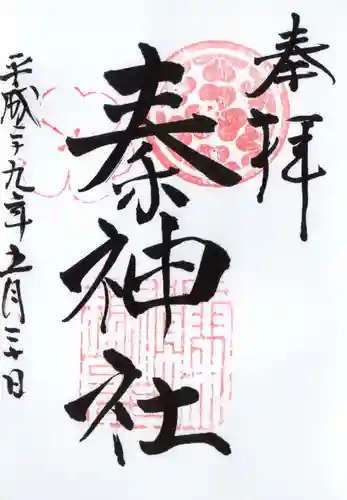 奉拝
秦神社
平成二九年五月三十日